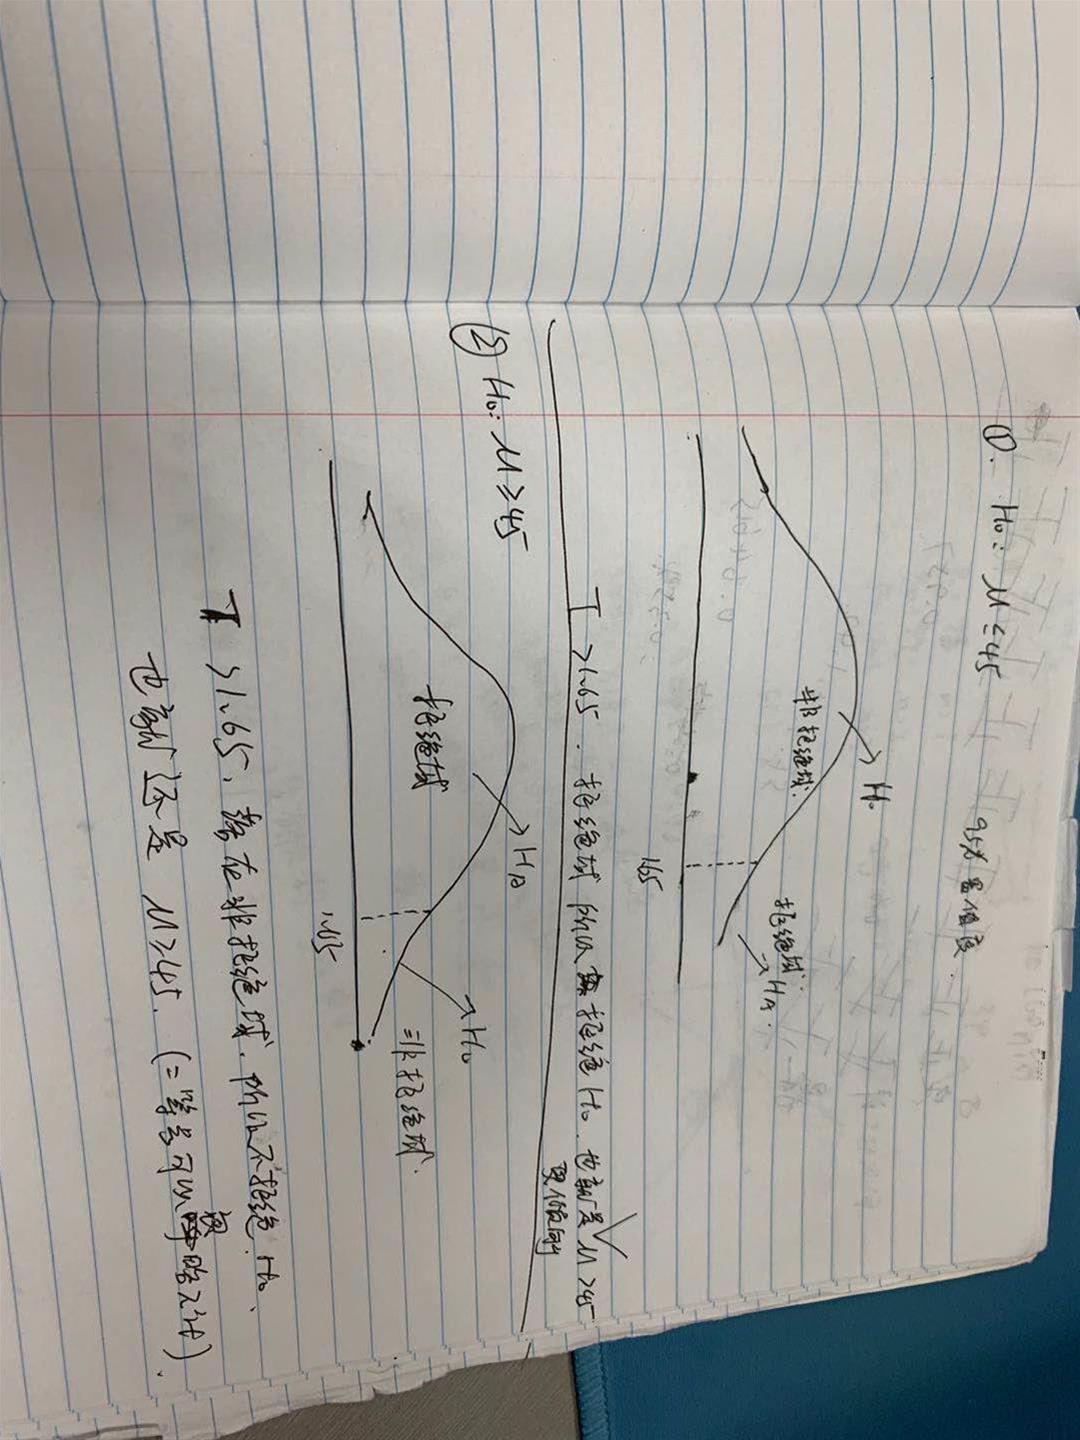 ①. H₀: μ≤45
95% 置信度.
→ H₀
非拒绝域.
拒绝域.
→ HA.
1.65
T >1.65. 拒绝域 所以 拒绝 H₀. 也就是 μ>45
更倾向
② H₀: μ≥45
→ HA
拒绝域
→ H₀
非拒绝域.
1.65
T >1.65, 落在非拒绝域. 所以不拒绝 H₀.
也就还是 μ≥45. (=等号可以忽略不计).